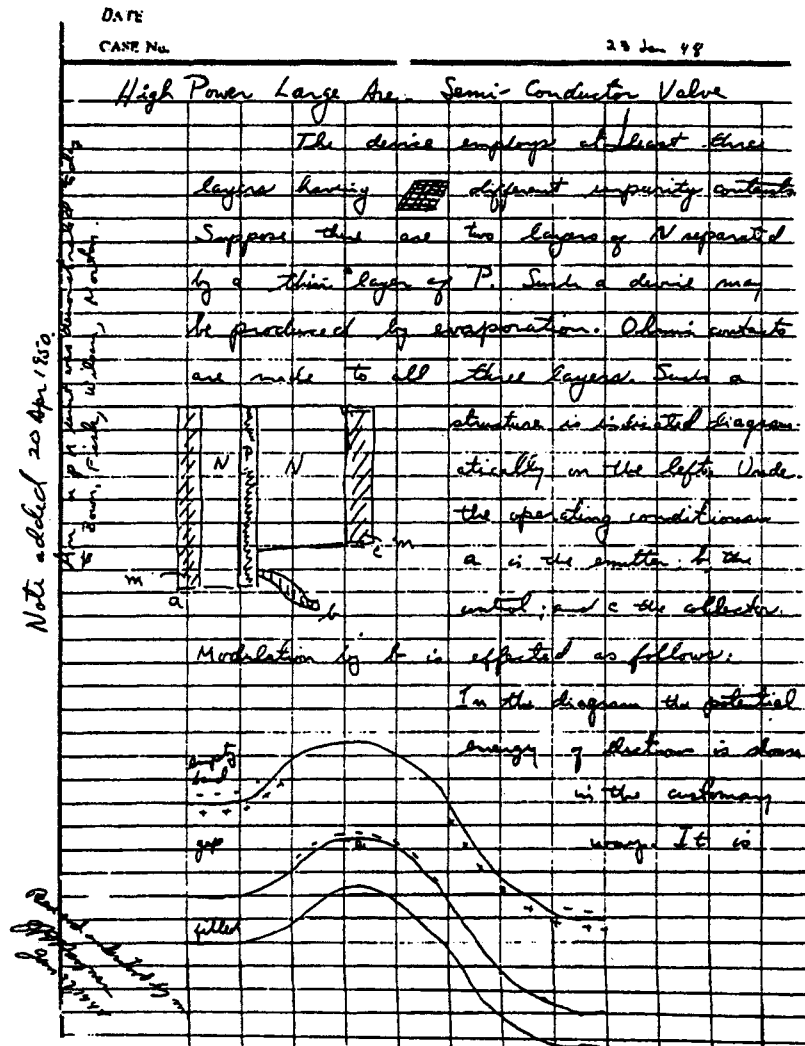 DATE
CASE No.
23 Jan 48
High Power Large Are Semi-Conductor Valve
The device employs at least three
layers having different impurity contents
Suppose there are two layers of N separated
by a thin layer of P. Such a device may
be produced by evaporation. Ohmic contacts
are made to all three layers. Such a
structure is indicated diagram-
atically on the left. Unde
the operating conditions
a is the emitter, b the
control; and c the collector.
Modulation by b is effected as follows:
In the diagram the potential
energy of electrons is shown
in the customary
way. It is
N
P
N
m
a
b
c
m
empty
band
gap
filled
Note added 20 Apr 1950.
unit was demonstrated
to Bown, Fisk, Wilson, Morton.
Read and understood by